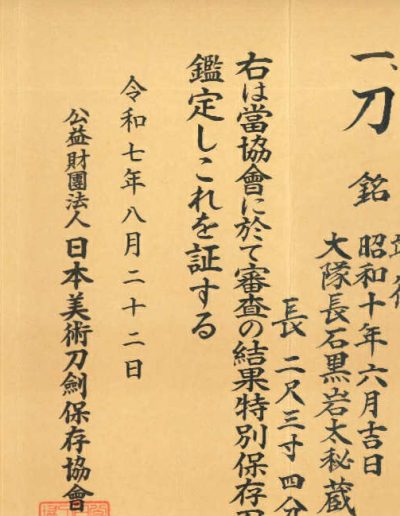 一、刀 銘
昭和十年六月吉日
大隊長石黒岩太秘蔵
長 二尺三寸四分
右は當協會に於て審査の結果特別保存刀
鑑定しこれを証する
令和七年八月二十二日
公益財團法人 日本美術刀劍保存協會